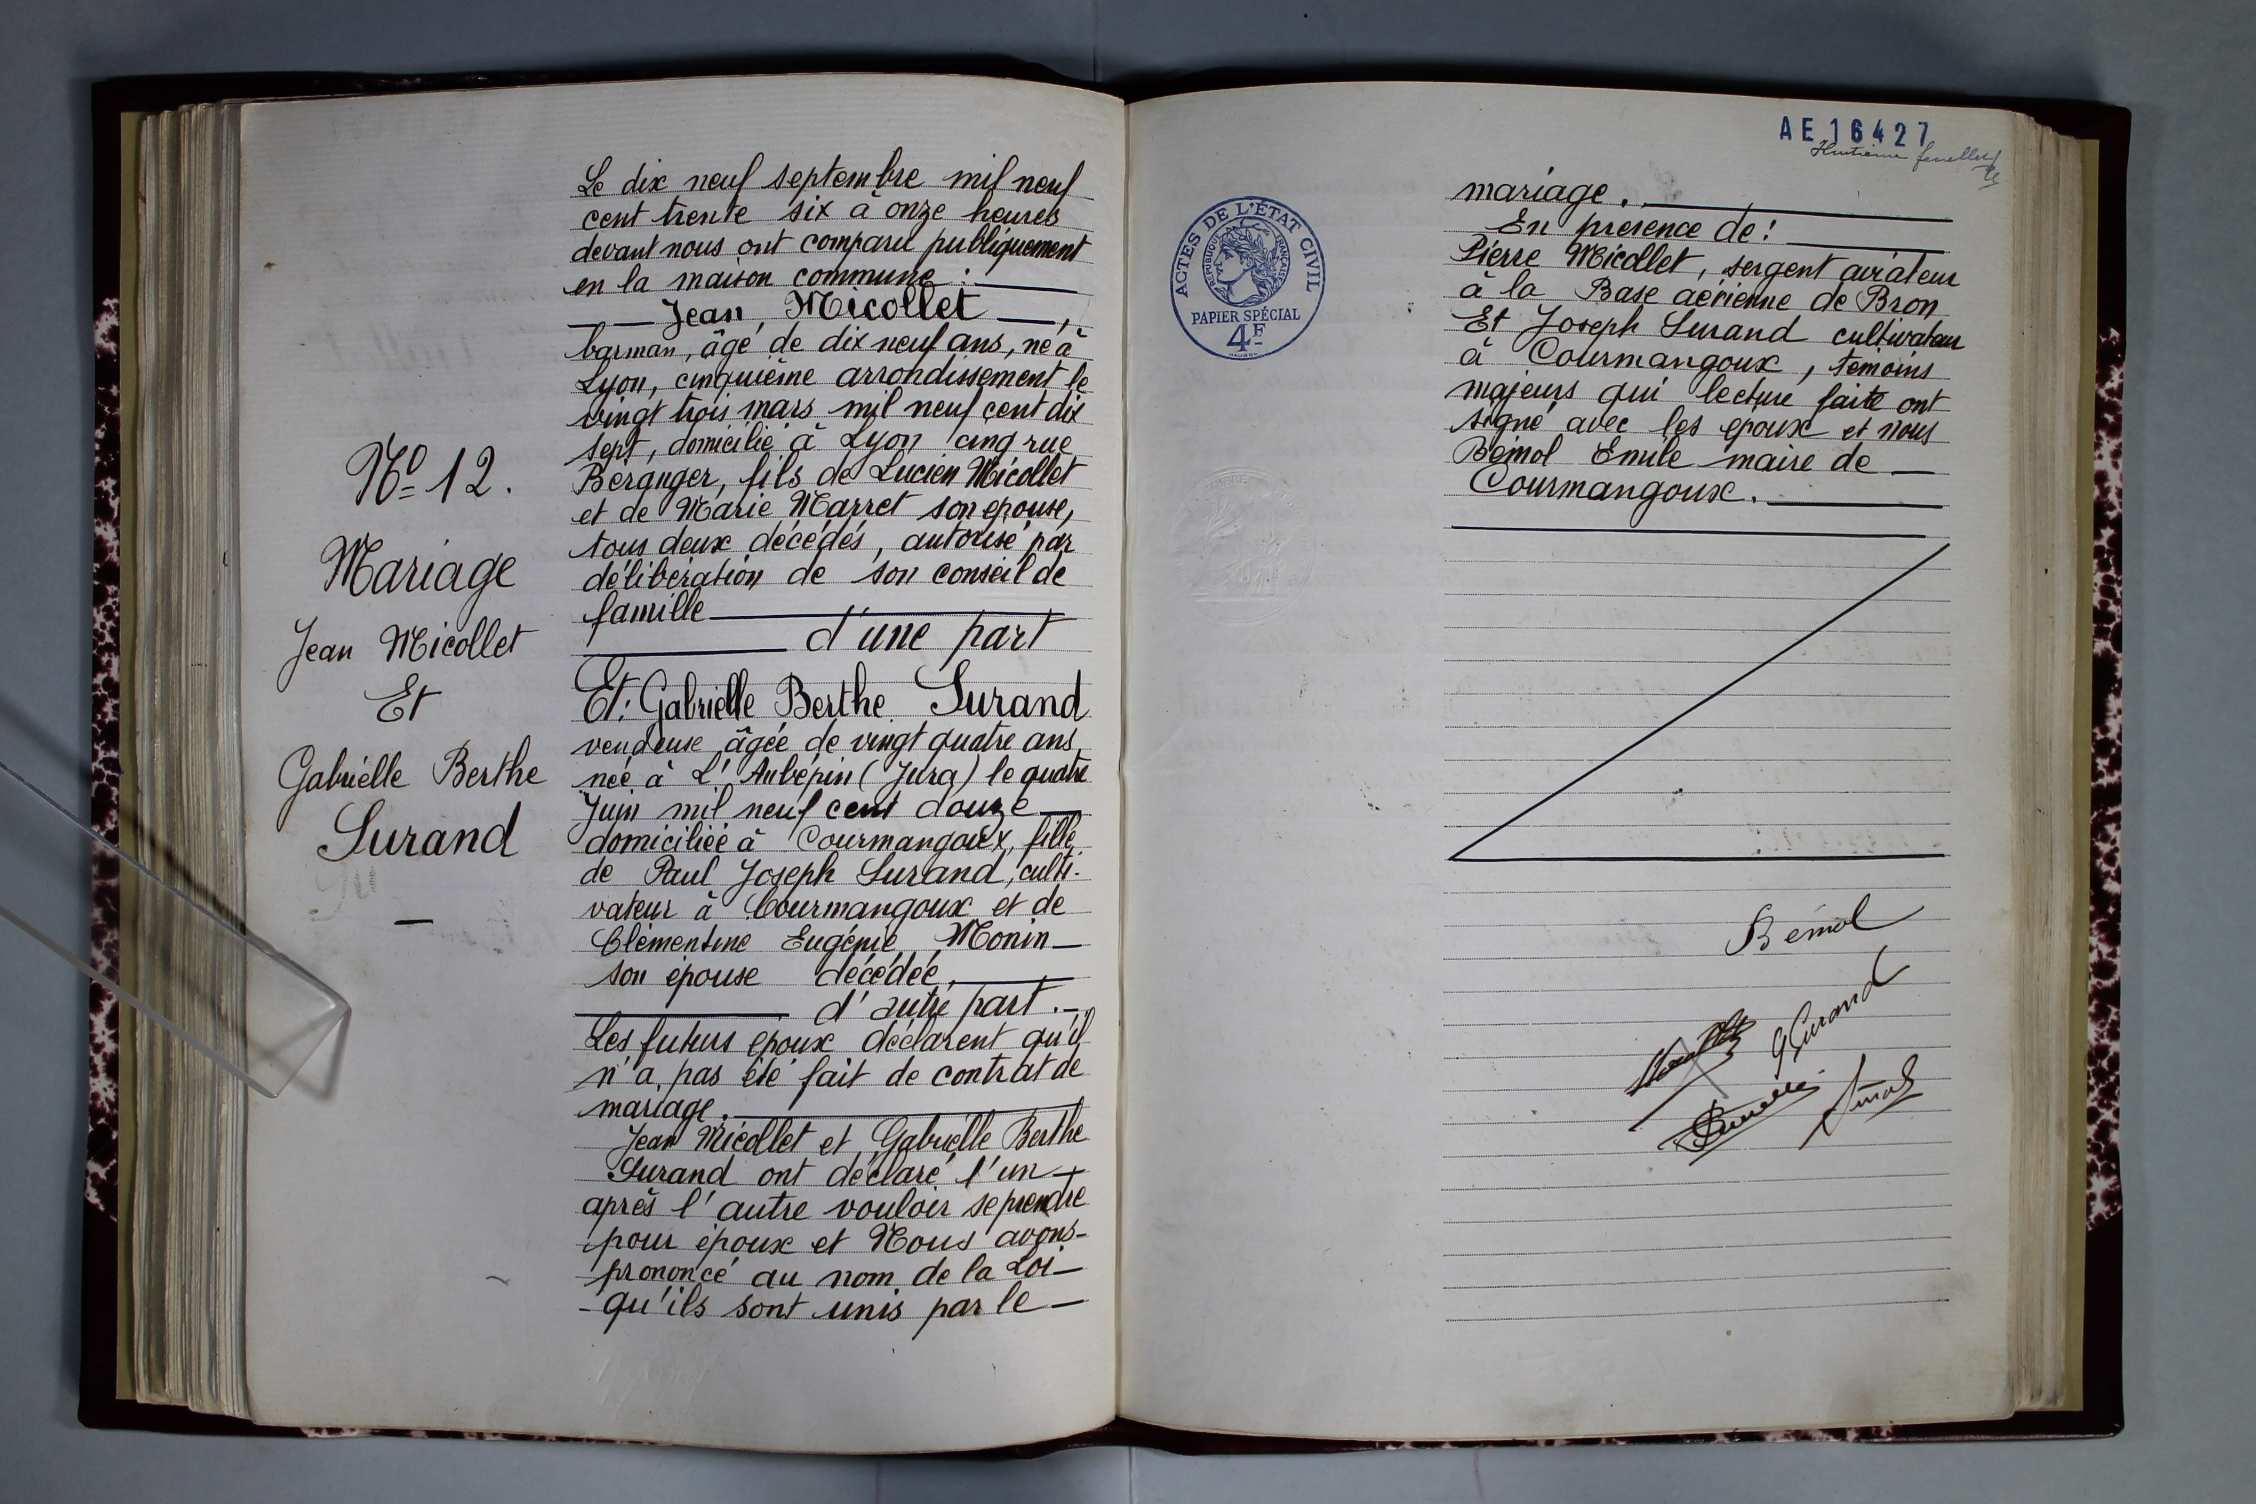 Nº 12.
Mariage
Jean Micollet
Et
Gabrielle Berthe
Surand
Le dix neuf septembre mil neuf
cent trente six à onze heures
devant nous ont comparu publiquement
en la maison commune :
Jean Micollet,
barman, âgé de dix neuf ans, né à
Lyon, cinquième arrondissement le
vingt trois mars mil neuf cent dix
sept, domicilié à Lyon cinq rue
Béranger, fils de Lucien Micollet
et de Marie Marret son épouse,
tous deux décédés, autorisé par
délibération de son conseil de
famille
d'une part
Et : Gabrielle Berthe Surand
vendeuse, âgée de vingt quatre ans
née à L'Aubépin (Jura) le quatre
Juin mil neuf cent douze
domiciliée à Courmangoux, fille
de Paul Joseph Surand, culti-
vateur à Courmangoux et de
Clémentine Eugénie Monin
son épouse décédée,
d'autre part.
Les futurs époux déclarent qu'il
n'a pas été fait de contrat de
mariage.
Jean Micollet et Gabrielle Berthe
Surand ont déclaré l'un
après l'autre vouloir se prendre
pour époux et Nous avons
prononcé au nom de la Loi
qu'ils sont unis par le
AE 16427
Huitième feuillet
ACTES DE L'ÉTAT CIVIL
RÉPUBLIQUE FRANÇAISE
PAPIER SPÉCIAL
4F
mariage.
En présence de :
Pierre Micollet, sergent aviateur
à la Base aérienne de Bron
Et Joseph Surand cultivateur
à Courmangoux, témoins
majeurs qui lecture faite ont
signé avec les époux et nous
Bémol Emile maire de
Courmangoux.
Bémol
G Surand